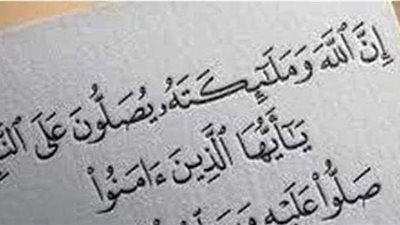 إِنَّ ٱللَّهَ وَمَلَٰٓئِكَتَهُۥ يُصَلُّونَ عَلَى
يَٰٓأَيُّهَا ٱلَّذِينَ ءَامَنُوا۟
صَلُّوا۟ عَلَيْهِ